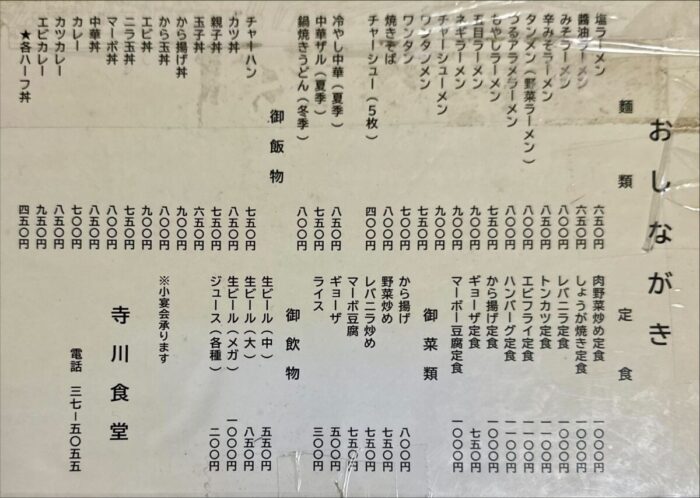 おしながき
麺類
塩ラーメン 六五〇円
醤油ラーメン 六五〇円
みそラーメン 八〇〇円
辛みそラーメン 八五〇円
タンメン(野菜ラーメン) 八〇〇円
つるアラメラーメン 八〇〇円
もやしラーメン 七五〇円
五目ラーメン 九〇〇円
ネギラーメン 九〇〇円
チャーシューメン 九〇〇円
ワンタンメン 七五〇円
ワンタン 七〇〇円
焼きそば 八〇〇円
チャーシュー(5枚) 四〇〇円
冷やし中華(夏季) 八五〇円
中華ザル(夏季) 七五〇円
鍋焼きうどん(冬季) 八〇〇円
御飯物
チャーハン 七五〇円
カツ丼 八五〇円
親子丼 七五〇円
玉子丼 六五〇円
から揚げ丼 九〇〇円
から玉丼 八〇〇円
エビ丼 九〇〇円
ニラ玉丼 七五〇円
マーボ丼 八〇〇円
中華丼 八五〇円
カレー 七〇〇円
カツカレー 八五〇円
エビカレー 九五〇円
★各ハーフ丼 四五〇円
定食
肉野菜炒め定食 一〇〇〇円
しょうが焼き定食 一〇〇〇円
レバニラ定食 一〇〇〇円
トンカツ定食 一一〇〇円
エビフライ定食 一一〇〇円
ハンバーグ定食 一一〇〇円
から揚げ定食 一〇〇〇円
ギョーザ定食 七五〇円
マーボー豆腐定食 一〇〇〇円
御菜類
から揚げ 八〇〇円
野菜炒め 七五〇円
レバニラ炒め 七五〇円
マーボ豆腐 七五〇円
ギョーザ 五〇〇円
ライス 三〇〇円
御飲物
生ビール(中) 五五〇円
生ビール(大) 八五〇円
生ビール(メガ) 一〇〇〇円
ジュース(各種) 二〇〇円
※小宴会承ります
寺川食堂
電話 三七ー五〇五五